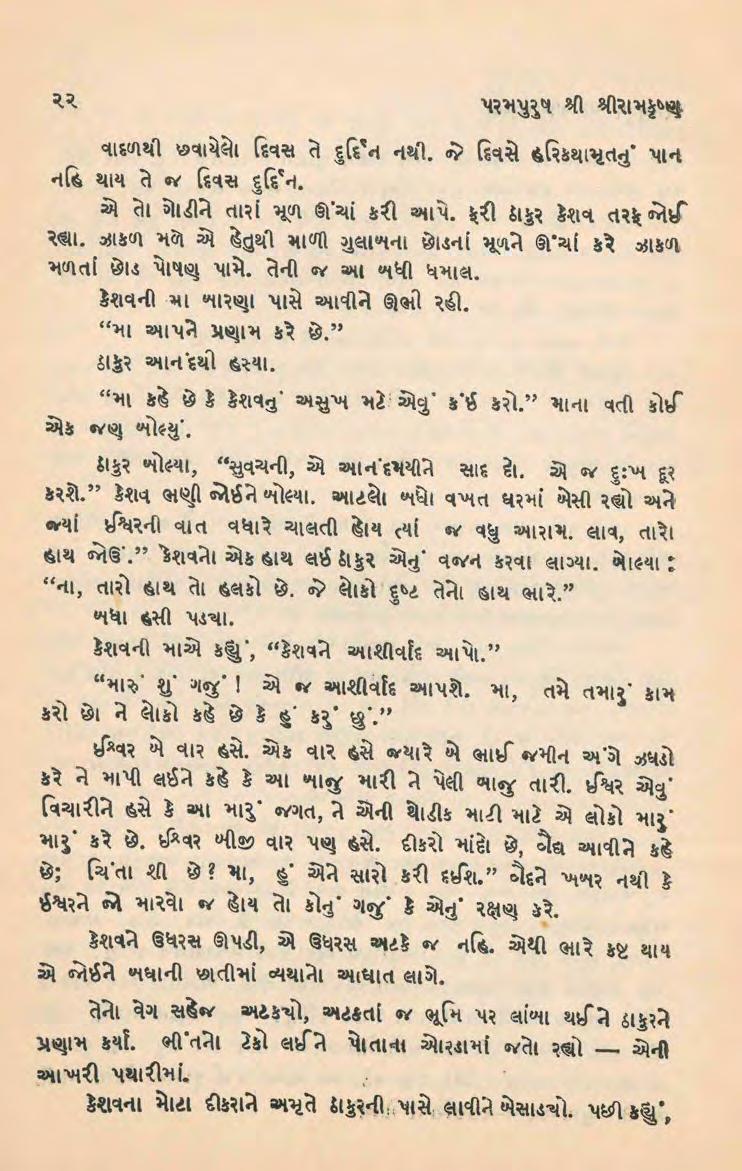 ૨૨ પરમપુરુષ શ્રી શ્રીરામકૃષ્ણ
વાદળથી છવાયેલો દિવસ તે દુર્દિન નથી. જે દિવસે હરિકથામૃતનું પાન
નહિ થાય તે જ દિવસ દુર્દિન.
એ તો ગોડીને તારાં મૂળ ઊંચાં કરી આપે. ફરી ઠાકુર કેશવ તરફ જોઈ
રહ્યા. ઝાકળ મળે એ હેતુથી માળી ગુલાબના છોડનાં મૂળને ઊંચાં કરે ઝાકળ
મળતાં છોડ પોષણ પામે. તેની જ આ બધી ધમાલ.
કેશવની મા બારણા પાસે આવીને ઊભી રહી.
“મા આપને પ્રણામ કરે છે.”
ઠાકુર આનંદથી હસ્યા.
“મા કહે છે કે કેશવનું અસુખ મટે એવું કંઈ કરો.” માના વતી કોઈ
એક જણ બોલ્યું.
ઠાકુર બોલ્યા, “સુવચની, એ આનંદમયીને સાદ દો. એ જ દુઃખ દૂર
કરશે.” કેશવ ભણી જોઈને બોલ્યા. આટલો બધો વખત ઘરમાં બેસી રહ્યો અને
જ્યાં ઈશ્વરની વાત વધારે ચાલતી હોય ત્યાં જ વધુ આરામ. લાવ, તારો
હાથ જોઉં.” કેશવનો એક હાથ લઈ ઠાકુર એનું વજન કરવા લાગ્યા. બોલ્યા :
“ના, તારો હાથ તો હલકો છે. જે લોકો દુષ્ટ તેનો હાથ ભારે.”
બધા હસી પડ્યા.
કેશવની માએ કહ્યું, “કેશવને આશીર્વાદ આપો.”
“મારું શું ગજું ! એ જ આશીર્વાદ આપશે. મા, તમે તમારું કામ
કરો છો ને લોકો કહે છે કે હું કરું છું.”
ઈશ્વર બે વાર હસે. એક વાર હસે જ્યારે બે ભાઈ જમીન અંગે ઝઘડો
કરે ને માપી લઈને કહે કે આ બાજુ મારી ને પેલી બાજુ તારી. ઈશ્વર એવું
વિચારીને હસે કે આ મારું જગત, ને એની થોડીક માટી માટે એ લોકો મારું
મારું કરે છે. ઈશ્વર બીજી વાર પણ હસે. દીકરો માંદો છે, બૈદ્ય આવીને કહે
છે; ચિંતા શી છે? મા, હું એને સારો કરી દઈશ.” બૈદને ખબર નથી કે
ઈશ્વરને જો મારવો જ હોય તો કોનું ગજું કે એનું રક્ષણ કરે.
કેશવને ઉધરસ ઊપડી, એ ઉધરસ અટકે જ નહિ. એથી ભારે કષ્ટ થાય
એ જોઈને બધાની છાતીમાં વ્યથાનો આઘાત લાગે.
તેનો વેગ સહેજ અટકયો, અટકતાં જ ભૂમિ પર લાંબા થઈને ઠાકુરને
પ્રણામ કર્યાં. ભીંતનો ટેકો લઈને પોતાના ઓરડામાં જતો રહ્યો — એની
આખરી પથારીમાં.
કેશવના મોટા દીકરાને અમૃતે ઠાકુરની પાસે લાવીને બેસાડયો. પછી કહ્યું,